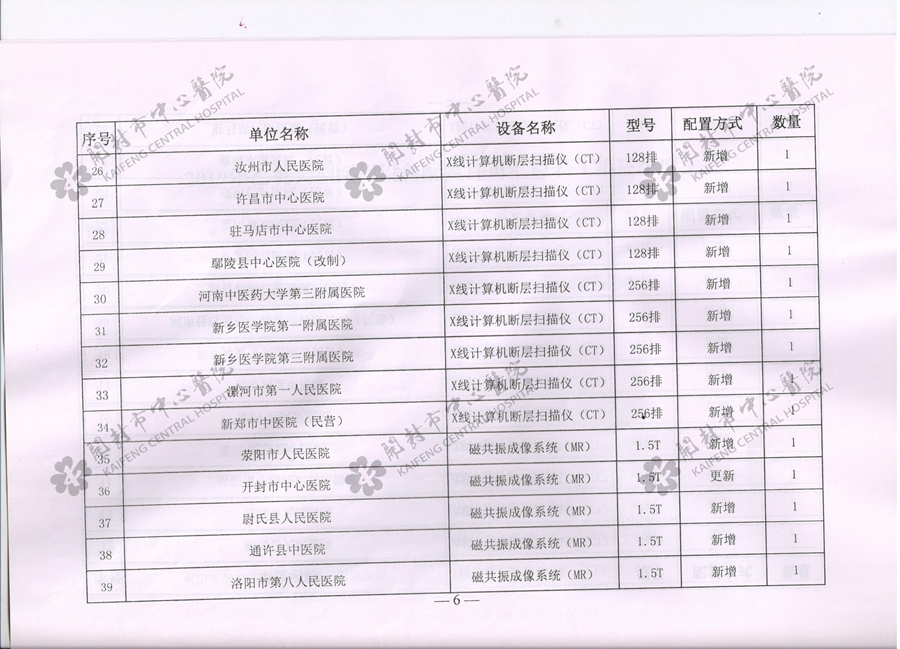 序号 单位名称 设备名称 型号 配置方式 数量
26 汝州市人民医院 X线计算机断层扫描仪（CT） 128排 新增 1
27 许昌市中心医院 X线计算机断层扫描仪（CT） 128排 新增 1
28 驻马店市中心医院 X线计算机断层扫描仪（CT） 128排 新增 1
29 鄢陵县中心医院（改制） X线计算机断层扫描仪（CT） 128排 新增 1
30 河南中医药大学第三附属医院 X线计算机断层扫描仪（CT） 256排 新增 1
31 新乡医学院第一附属医院 X线计算机断层扫描仪（CT） 256排 新增 1
32 新乡医学院第三附属医院 X线计算机断层扫描仪（CT） 256排 新增 1
33 漯河市第一人民医院 X线计算机断层扫描仪（CT） 256排 新增 1
34 新郑市中医院（民营） X线计算机断层扫描仪（CT） 256排 新增 1
35 荥阳市人民医院 磁共振成像系统（MR） 1.5T 新增 1
36 开封市中心医院 磁共振成像系统（MR） 1.5T 更新 1
37 尉氏县人民医院 磁共振成像系统（MR） 1.5T 新增 1
38 通许县中医院 磁共振成像系统（MR） 1.5T 新增 1
39 洛阳市第八人民医院 磁共振成像系统（MR） 1.5T 新增 1
—6—
開封市中心醫院
KAIFENG CENTRAL HOSPITAL
開封市中心醫院
KAIFENG CENTRAL HOSPITAL
開封市中心醫院
KAIFENG CENTRAL HOSPITAL
開封市中心醫院
KAIFENG CENTRAL HOSPITAL
開封市中心醫院
KAIFENG CENTRAL HOSPITAL
開封市中心醫院
KAIFENG CENTRAL HOSPITAL